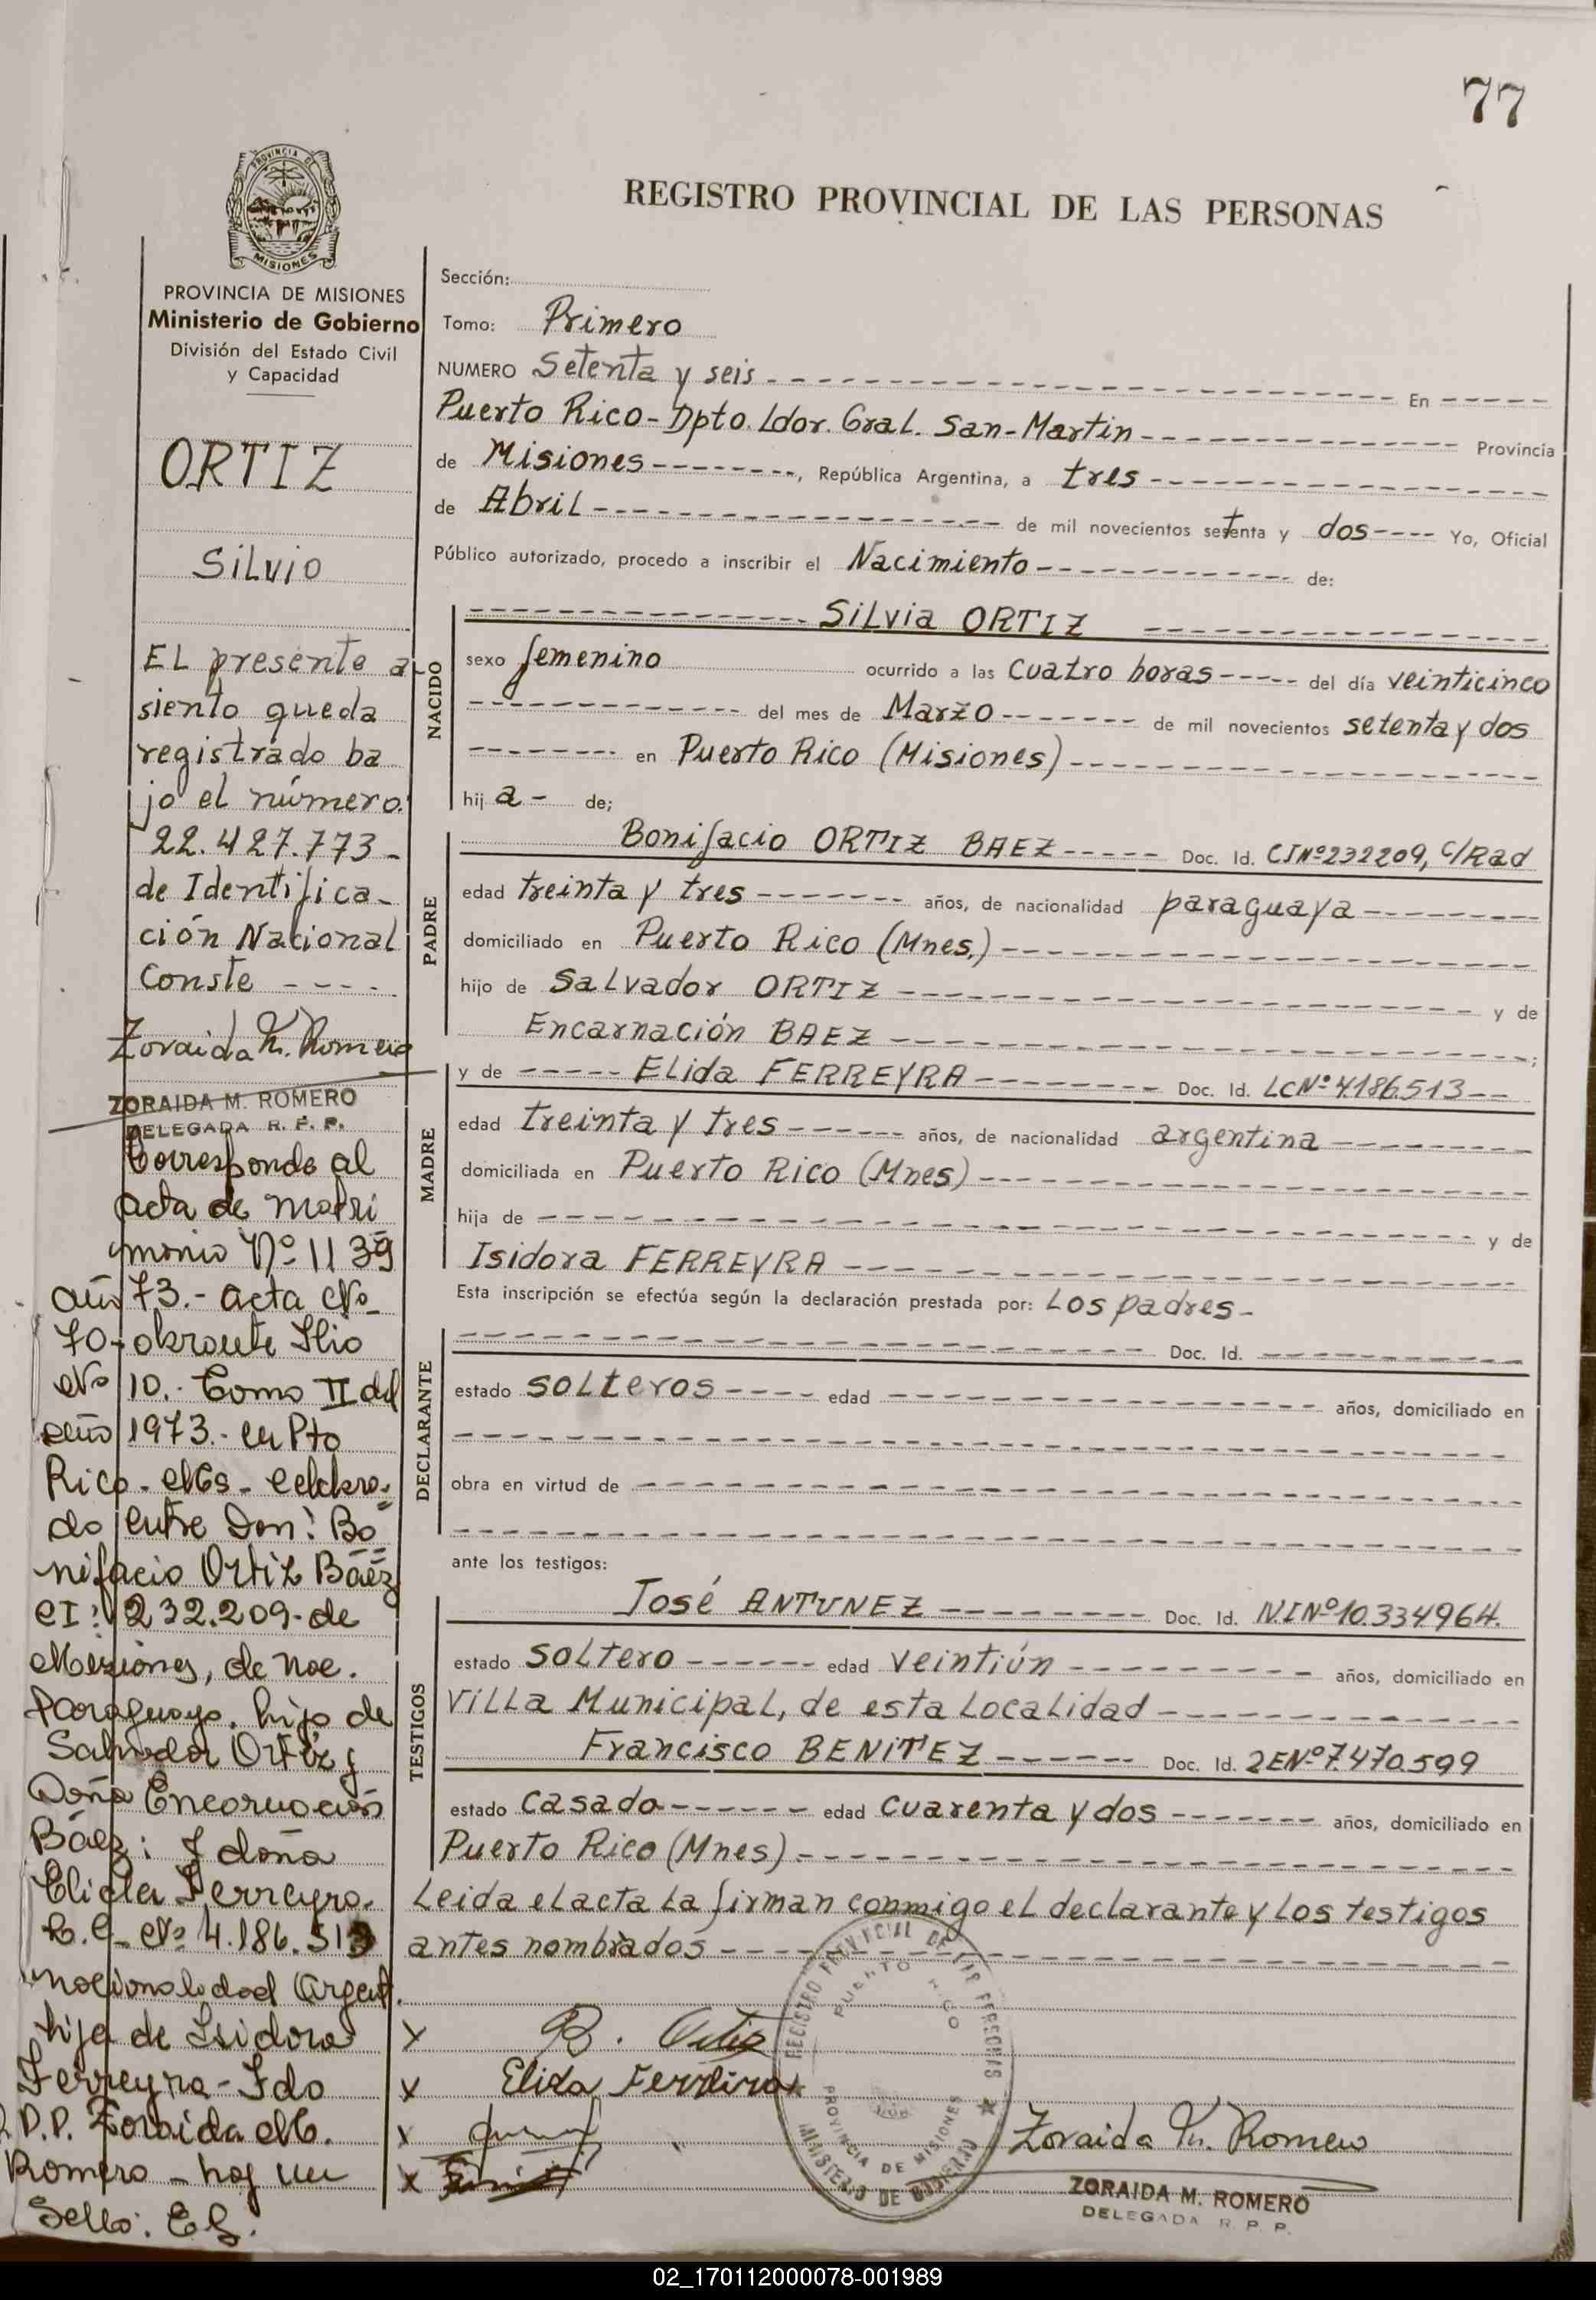 77
PROVINCIA DE
MISIONES
REGISTRO PROVINCIAL DE LAS PERSONAS
PROVINCIA DE MISIONES
Ministerio de Gobierno
División del Estado Civil
y Capacidad
ORTIZ
Silvio
EL presente a
siento queda
registrado ba
jo el número
22.427.773-
de Identifica-
ción Nacional
Conste ----
Zoraida M. Romero
ZORAIDA M. ROMERO
DELEGADA R. P. P.
Corresponde al
acta de matri
monio Nº 1139
año 73.- acta No
70-obrante folio
No 10.- Tomo II del
año 1973.- en Pto
Rico - Mes - celebra-
do entre Don: Bo
nifacio Ortiz Báez
CI: 232.209- de
Misiones, de nac.
Paraguaya, hijo de
Salvador Ortiz y
Doña Encarnación
Báez: y doña
Elida Ferreyra.
L.C- No 4.186.513
nacionalidad Argent.
hija de Isidora
Ferreyra - Fdo
D.P. Zoraida M.
Romero - hay un
Sello: ES.
Sección:
Tomo: Primero
NUMERO Setenta y seis ---- En ----
Puerto Rico - Dpto. Ldor. Gral. San-Martin ---- Provincia
de Misiones ----, República Argentina, a tres ----
de Abril ---- de mil novecientos setenta y dos ---- Yo, Oficial
Público autorizado, procedo a inscribir el Nacimiento ---- de:
NACIDO
---- Silvia ORTIZ ----
sexo femenino ocurrido a las cuatro horas ---- del día veinticinco
---- del mes de Marzo ---- de mil novecientos setenta y dos
---- en Puerto Rico (Misiones) ----
hij a - de;
PADRE
Bonifacio ORTIZ BAEZ ---- Doc. Id. CINº232209, C/Rad
edad treinta y tres ---- años, de nacionalidad paraguaya ----
domiciliado en Puerto Rico (Mnes.) ----
hijo de Salvador ORTIZ ---- y de
Encarnación BAEZ ----;
MADRE
y de ---- Elida FERREYRA ---- Doc. Id. LCNº4.186.513 --
edad treinta y tres ---- años, de nacionalidad argentina ----
domiciliada en Puerto Rico (Mnes) ----
hija de ---- y de
Isidora FERREYRA ----
Esta inscripción se efectúa según la declaración prestada por: Los padres -
DECLARANTE
---- Doc. Id. ----
estado solteros ---- edad ---- años, domiciliado en
----
obra en virtud de ----
----
ante los testigos:
TESTIGOS
José ANTUNEZ ---- Doc. Id. N.I Nº10.334.964.
estado soltero ---- edad veintiún ---- años, domiciliado en
Villa Municipal, de esta Localidad ----
Francisco BENITEZ ---- Doc. Id. 2ENº7.470.599
estado casado ---- edad cuarenta y dos ---- años, domiciliado en
Puerto Rico (Mnes) ----
Leida el acta La firman conmigo el declarante y Los testigos
antes nombrados ----
x B. Ortiz
x Elida Ferreira
x
x
REGISTRO PROVINCIAL DE LAS PERSONAS
PUERTO RICO
PROVINCIA DE MISIONES
MINISTERIO DE GOBIERNO
Zoraida M. Romero
ZORAIDA M. ROMERO
DELEGADA R. P. P.
02_170112000078-001989